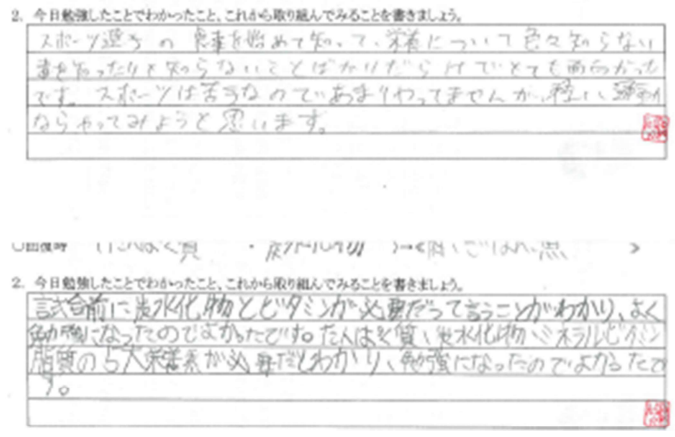 2. 今日勉強したことでわかったこと、これから取り組んでみることを書きましょう。
スポーツ選手の食事を始めて知って、栄養について色々知らない
事を知ったりと知らないことばかりだらけでとても面白かった
です。スポーツは苦手なのであまりやってませんが、軽い運動
ならやってみようと思います。
○回復時 (たんぱく質 ・ 炭水化物 )→
2. 今日勉強したことでわかったこと、これから取り組んでみることを書きましょう。
試合前に炭水化物とビタミンが必要だって言うことがわかり、よく
勉強になったのでよかったです。たんぱく質、炭水化物、ミネラル、ビタミン
脂質の5大栄養素が必要だとわかり、勉強になったのでよかったで
す。